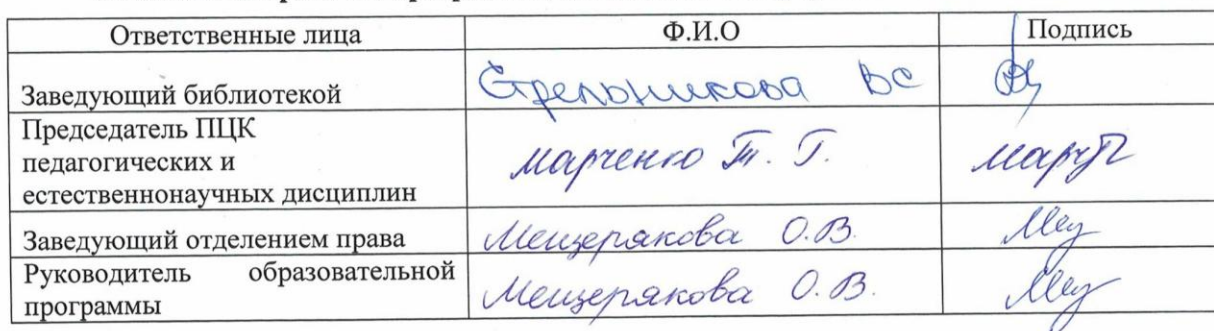 Ответственные лица Ф.И.О Подпись
Заведующий библиотекой Стрельникова ВС
Председатель ПЦК
педагогических и
естественнонаучных дисциплин Марченко Т. Г.
Заведующий отделением права Мещерякова О.В.
Руководитель образовательной
программы Мещерякова О.В.